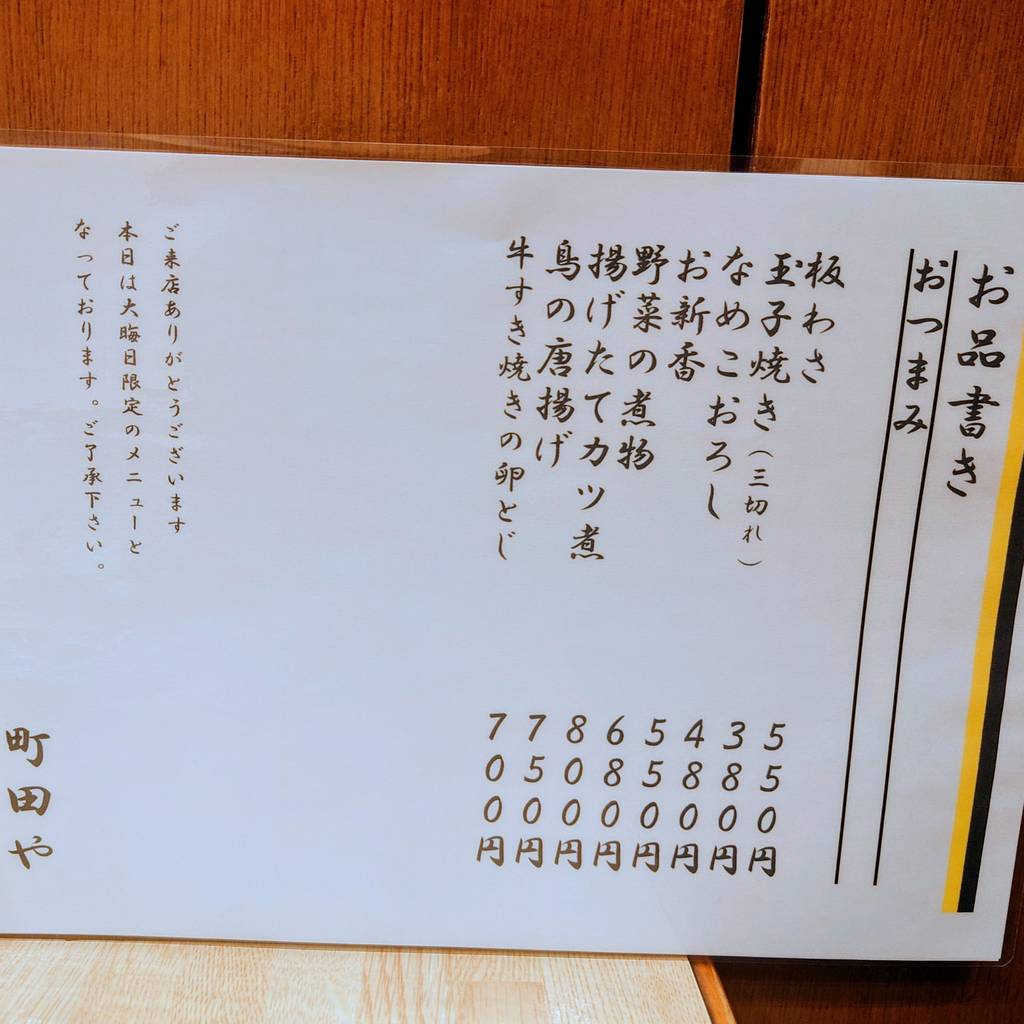 お品書き
おつまみ
板わさ 550円
玉子焼き（三切れ） 380円
なめこおろし 480円
お新香 550円
野菜の煮物 680円
揚げたてカツ煮 800円
鳥の唐揚げ 750円
牛すき焼きの卵とじ 700円
ご来店ありがとうございます
本日は大晦日限定のメニューと
なっております。ご了承下さい。
町田や